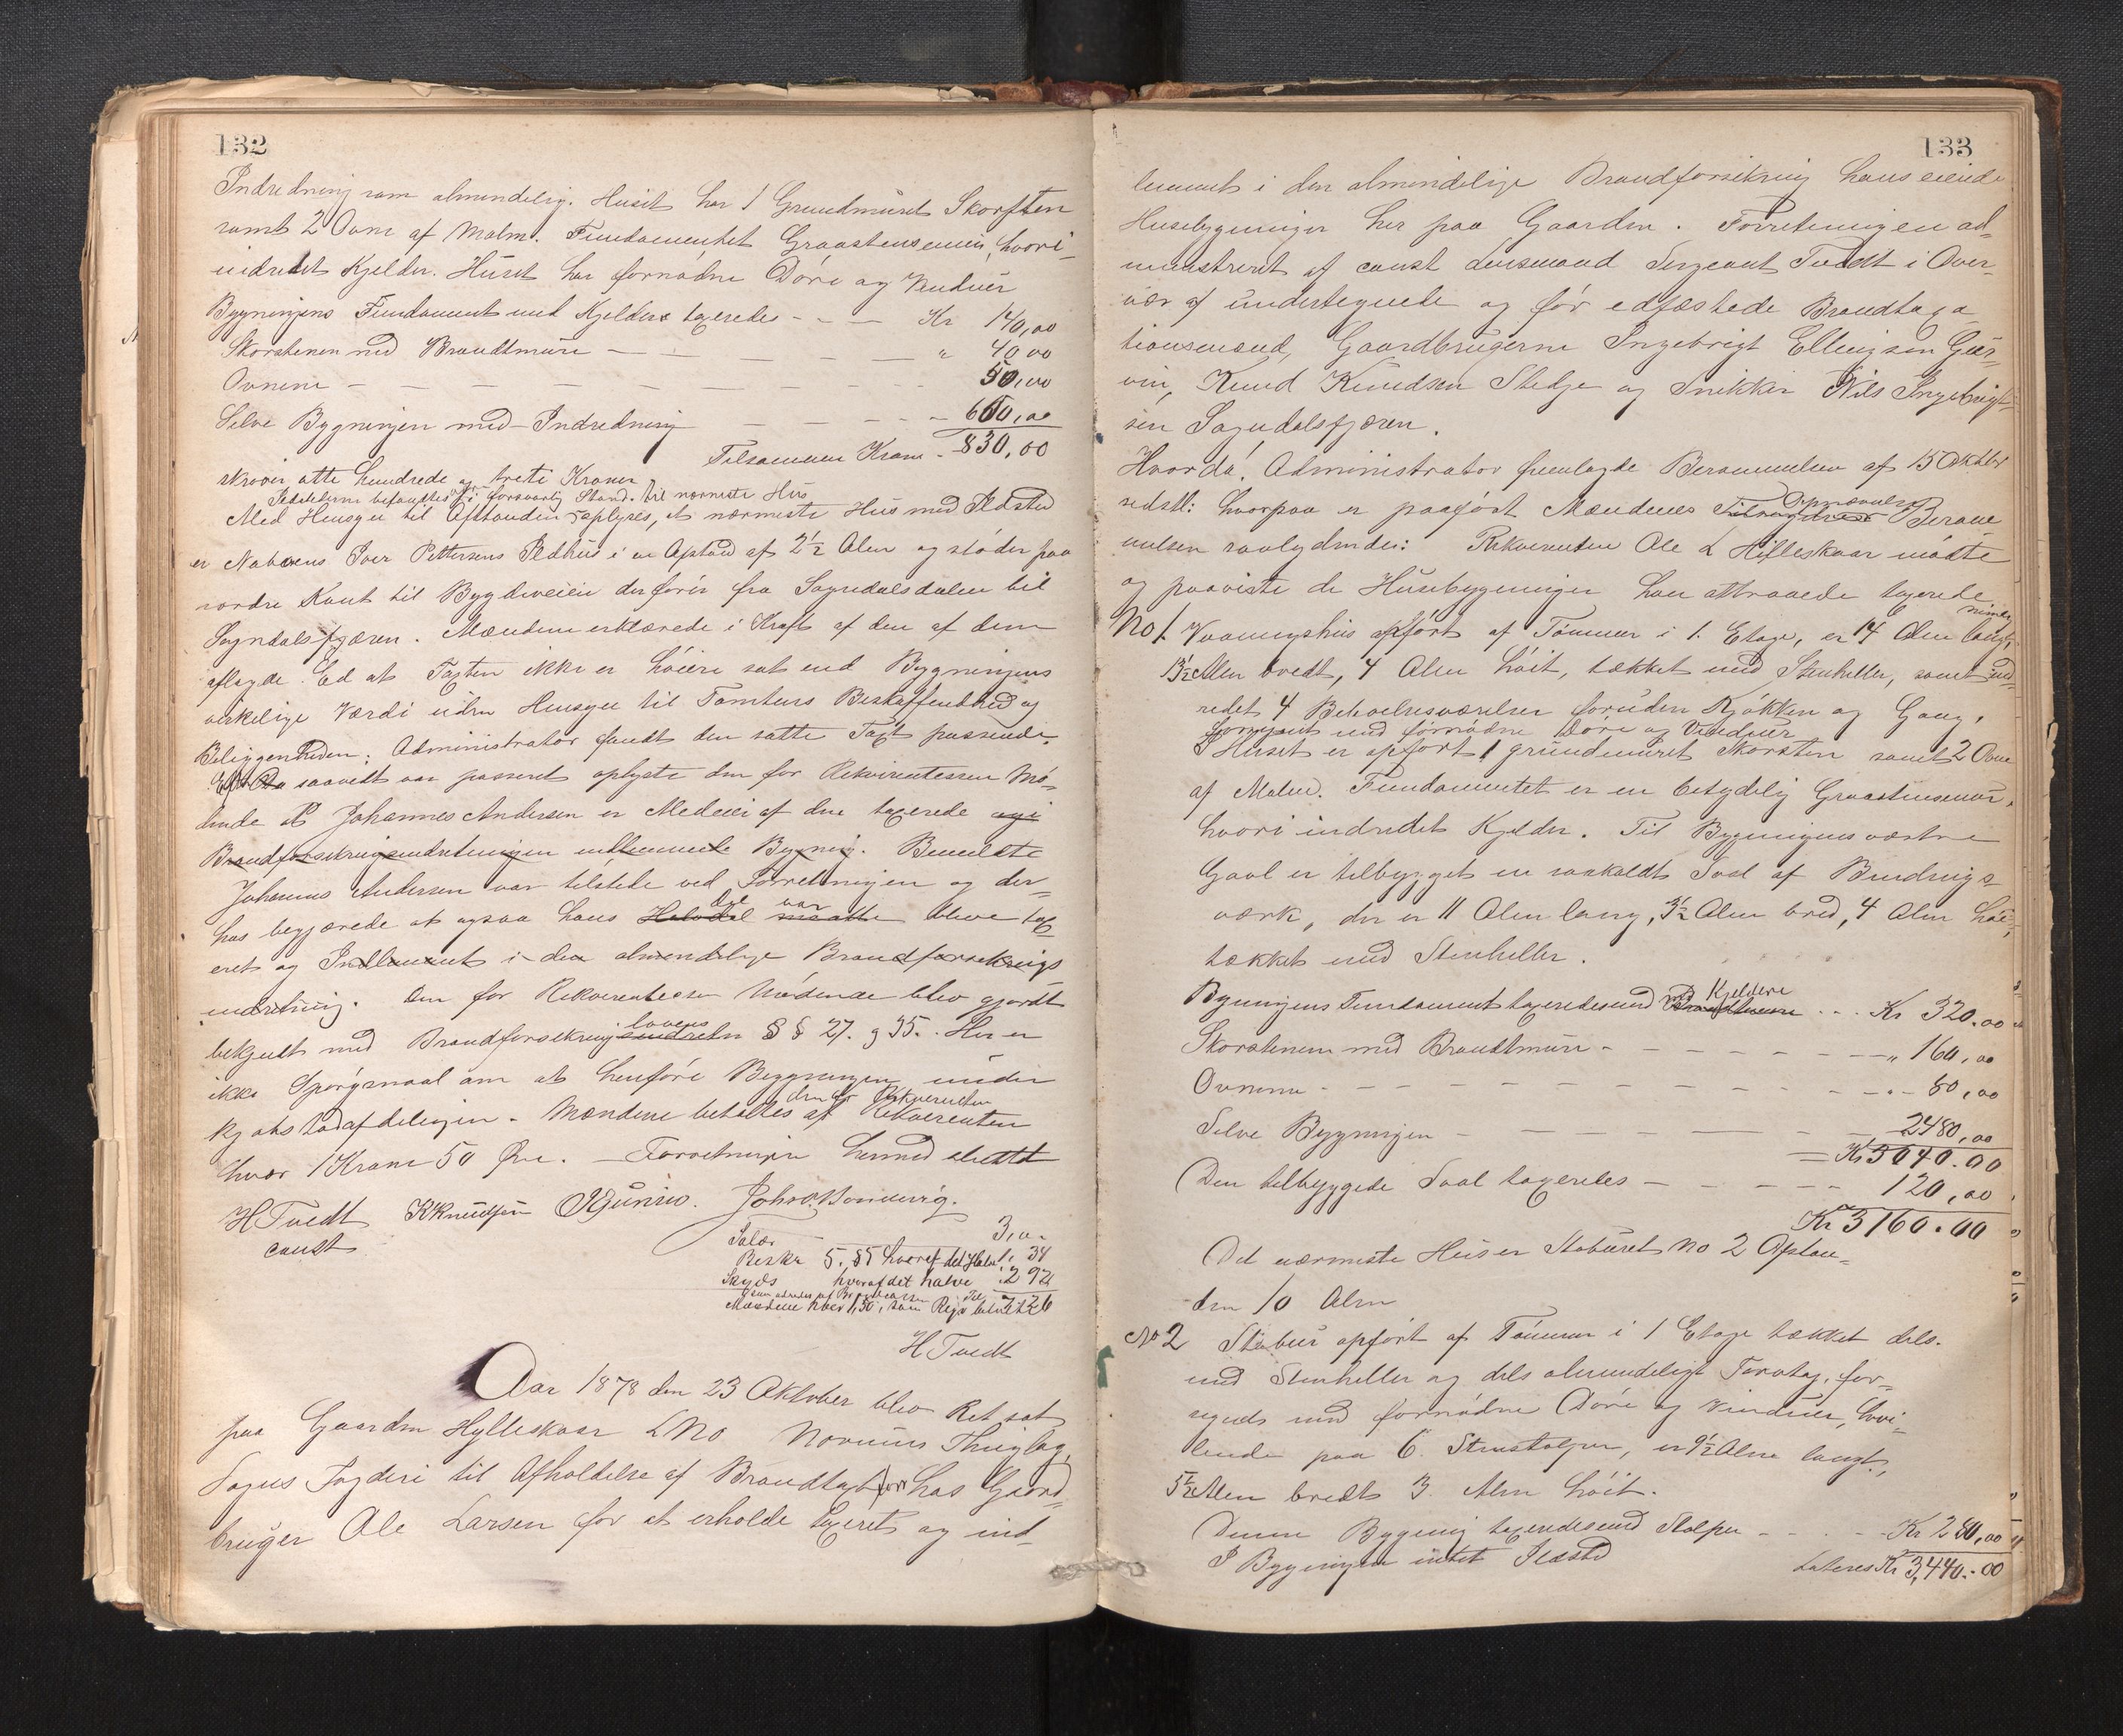 132
Indredning som almindelig. Huset har 1 Grundmuret Skorsten
samt 2 Ovne af Malm. Fundamentet Graastensmuur, hvori
indredet Kjelder. Huset har fornødne Døre og Vinduer
Bygningens Fundament med Kjelder taxeredes - - - Kr 140,00
Skorstenen med Brandtmure - - - „ 40,00
Ovnene - - - 50,00
Selve Bygningen med Indredning - - - 600,00
Tilsammen Kroner - 830,00
skriver otte hundrede og treti Kroner
Ildstederne befandtes i forsvarlig Stand. til nærmeste Hus
Med Hensyn til Afstanden oplyses, at nærmeste Hus med Ildsted
er Naboens Iver Pettersens Ildhus i en Afstand af 2½ Alen og støder paa
nordre Kant til Bygdeveien der fører fra Sogndalsdalen til
Sogndalsfjæren. Mændene erklærede i Kraft af den af dem
aflagde Ed at Taxten ikke er høiere sat end Bygningens
virkelige Værdi uden Hensyn til Tomtens Beskaffenhed og
Beliggenheden. Administrator fandt den satte Taxt passende.
Efter saavidt var passeret oplyste den for Rekvirentessen Mø-
dende at Johannes Andersen er Medeier af den taxerede og i
Brandforsikringsindretningen indlemmede Bygning. Bemeldte
Johannes Andersen var tilstede ved Forretningen og der-
hos begjærede at ogsaa hans Halvdel del maatte var blive tax-
eret og Indlemmet i den almindelige Brandforsikrings
indretning. Den for Rekvirentessen Mødende blev gjordt
bekjendt med Brandforsikringslovens §§ 27. og 35. Her er
ikke Spørgsmaal om at henføre Bygningen under
kjøbstadafdelingen. Mændene betaltes af Rekvirenten
hver 1 Krone 50 Øre. - Forretningen hermed sluttet
H Tvedt K Knudsen
const
Salær - 3,00
Beskr 5.85 hvoraf det Halve 1. 34
Skyds hvoraf det halve 2 92
Mændene hver 1,50, som Reqv betalte 7.26
H Tvedt
Aar 1878 den 23 Oktober blev Ret sat
paa Gaarden Hylleskaar LNo Norums Thinglag,
Sogns Fogderi til Afholdelse af Brandtaxt for hos Gaard-
bruger Ole Larsen for at erholde taxeret og ind-
133
lemmet i den almindelige Brandforsikring hans eiende
Husebygninger her paa Gaarden. Forretningen ad-
ministreret af const Lensmand Sergeant Tvedt i Over-
vær af undertegnede og før edfæstede Brandtaxa
tionsmænd, Gaardbrugerne Ingebrigt Ellingsen Gur-
vin, Knud Knudsen Stedje og Snikker Nils Ingebrigt-
sen Sogndalsfjæren.
Hvorda! Administrator fremlagde Berammelsen af 15 Oktbr
sidstl: hvorpaa er paaført Mændenes Opnævnelse Beram
melsen saalydende: Rekvirenten Ole L Hilleskaar mødte
og paaviste de Husebygninger han attraaede taxerede nemlig
No 1. Vaaningshus opført af Tømmer i 1. Etage, er 14 Alen langt,
13½ Alen bredt, 4 Alen høit, tækket med Stenheller, samt ind-
redet 4 Beboelsesværelser foruden Kjøkken og Gang,
forsynet med fornødne Døre og Vinduer
I Huset er opført 1 grundmuret Skorsten samt 2 Ovne
af Malm. Fundamentet er en betydelig Graastensmur,
hvori indredet Kjelder. Til Bygningens vestre
Gavl er tilbygget en saakaldt Sval af Bindings-
værk, der er 11 Alen lang, 3½ Alen bred, 4 Alen høi,
tækket med Stenheller.
Bygningens Fundament taxeredes med Kjeldere - - Kr 320.00
Skorstenen med Brandtmure - - - „ 160,00
Ovnene - - - „ 80,00
Selve Bygningen - - - 2480,00
= Kr 3040.00
Den tilbyggede Sval taxeredes - - - 120,00
Kr 3160.00
Det nærmeste Hus er Staburet No 2 Afstan-
den 10 Alen
No 2 Stabur opført af Tømmer i 1 Etage tækket dels
med Stenheller og dels almindeligt Torvtag, for-
synet med fornødne Døre og Vinduer, hvi-
lende paa 6 Stenstolper, er 9½ Alen langt,
5½ Alen bredt 3 Alen høit.
Denne Bygning taxeredes med Stolper - - - Kr 280,00
I Bygningen intet Ildsted
Lateres Kr 3,440.-00